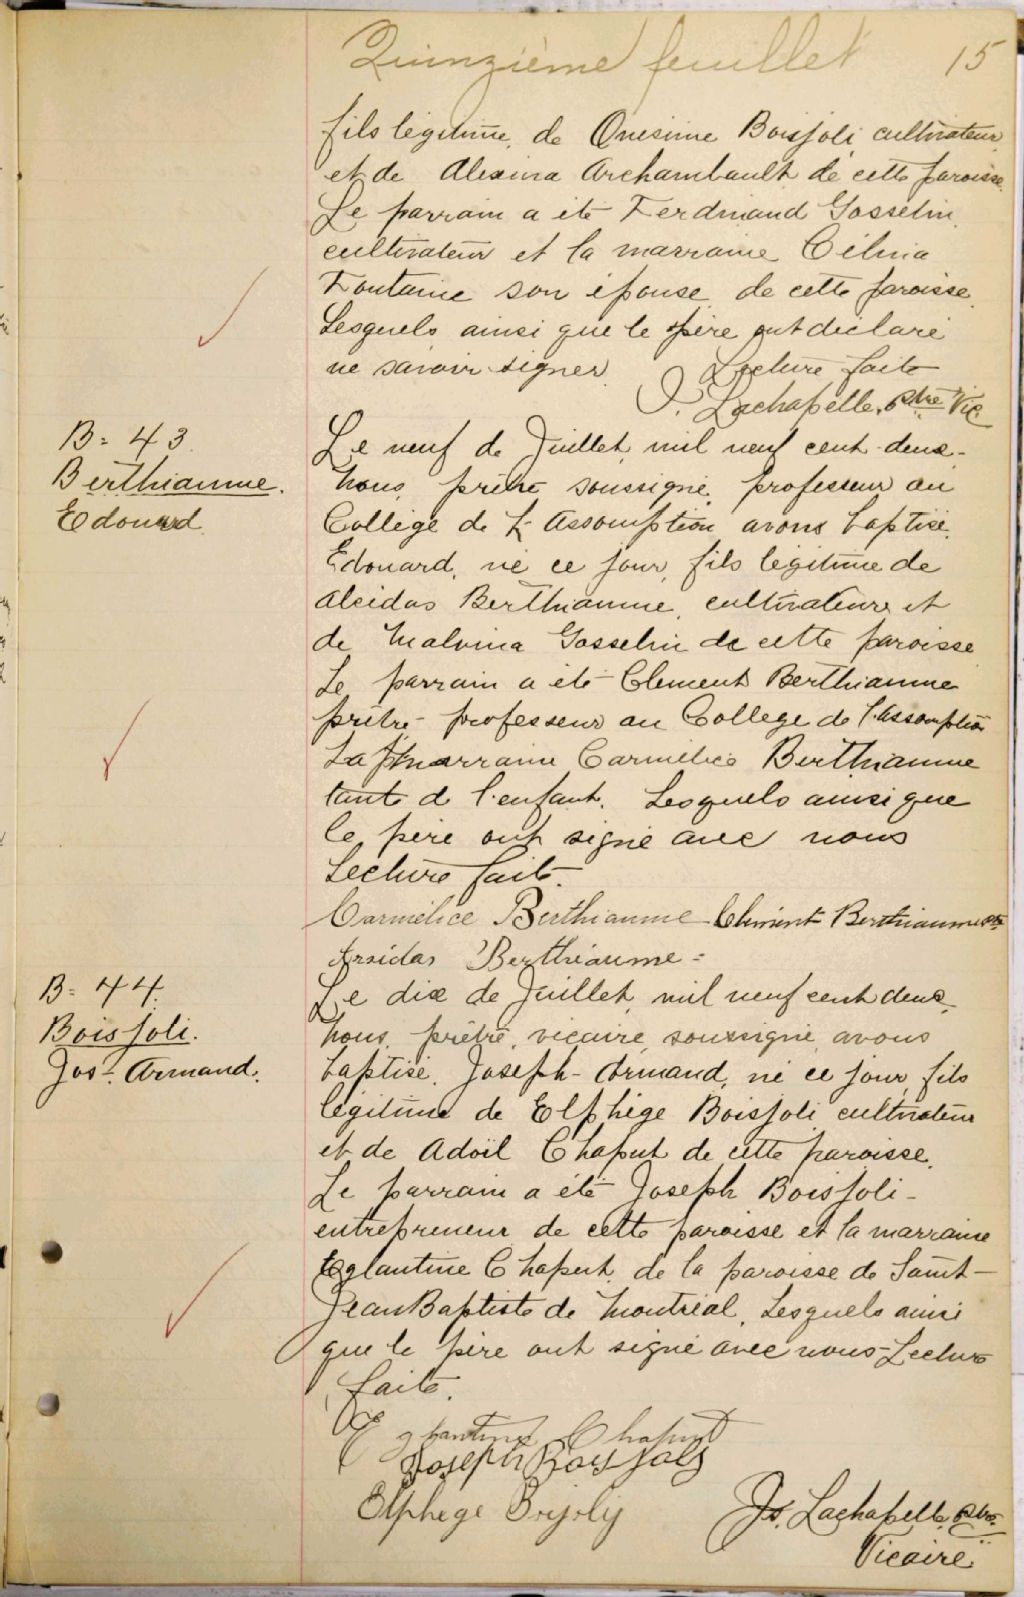 Quinzième feuillet 15
fils légitime de Onésime Boisjoli, cultivateur,
et de Alexina Archambault de cette paroisse.
Le parrain a été Ferdinand Gosselin,
cultivateur et la marraine Célina
Fontaine son épouse de cette paroisse.
Lesquels ainsi que le père ont déclaré
ne savoir signer. Lecture faite
J. Lachapelle, Ptre Vic.
B = 43.
Berthiaume.
Edouard.
Le neuf de Juillet, mil neuf cent deux,
Nous, prêtre soussigné, professeur au
Collège de L'Assomption avons baptisé,
Edouard, né ce jour, fils légitime de
Alcidas Berthiaume, cultivateur, et
de Malvina Gosselin de cette paroisse
Le parrain a été Clément Berthiaume
prêtre-professeur au Collège de l'Assomption
La marraine Carmélice Berthiaume
tante de l'enfant. Lesquels ainsi que
le père ont signé avec nous
Lecture faite.
Carmélice Berthiaume Clément Berthiaume ptre
Arsidas Berthiaume =
B = 44.
Boisjoli.
Jos- Armand.
Le dix de Juillet, mil neuf cent deux,
Nous, prêtre, vicaire, soussigné avons
baptisé, Joseph-Armand, né ce jour, fils
légitime de Elphège Boisjoli cultivateur
et de Adoïl Chaput de cette paroisse.
Le parrain a été Joseph Boisjoli-
entrepreneur de cette paroisse et la marraine
Eglantine Chaput, de la paroisse de Saint-
Jean Baptiste de Montréal, Lesquels ainsi
que le père ont signé avec nous-Lecture
faite.
Eglantine Chaput
Joseph Boisjoly
Elphege Boijoly
Js. Lachapelle, ptre.
Vicaire